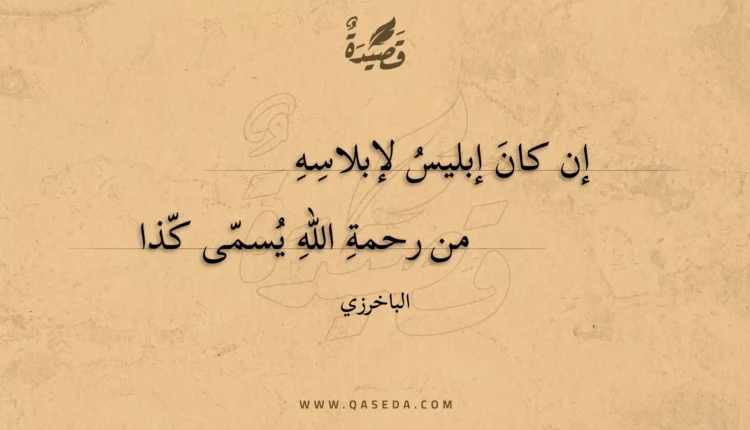 قَصِيْدَةٌ
إن كانَ إبليسُ لإبلاسِهِ
من رحمةِ اللهِ يُسمّى كّذا
الباخرزي
WWW.QASEDA.COM